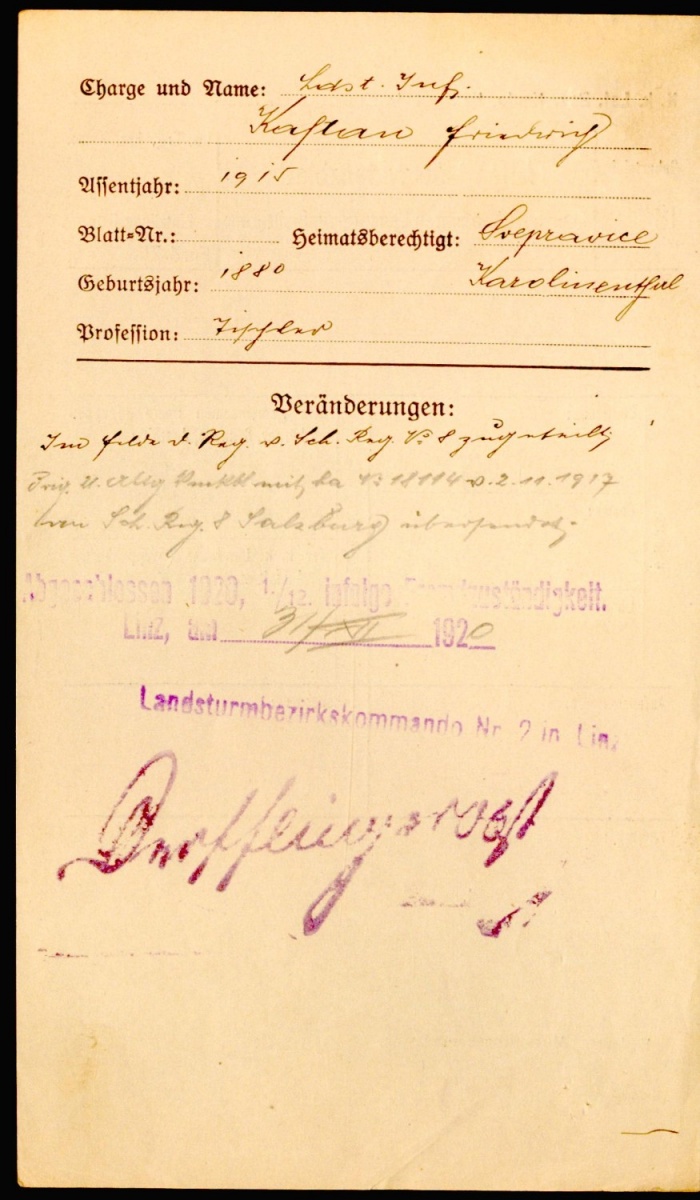 Charge und Name: Ldst. Inf.
Kaftan Friedrich
Assentjahr: 1915
Blatt=Nr.: Heimatsberechtigt: Svepravice
Geburtsjahr: 1880 Karolinenthal
Profession: Tischler
Veränderungen:
Im Felde d. Reg. v. Sch. Reg. No 8 zugeteilt
mit No 18114 v. 2.11.1917
von Sch. Reg. 8 Salzburg übersendet.
Abgeschlossen 1920, 1./12. infolge Fremdzuständigkeit.
Linz, am 31/XII 1920
Landsturmbezirkskommando Nr. 2 in Linz